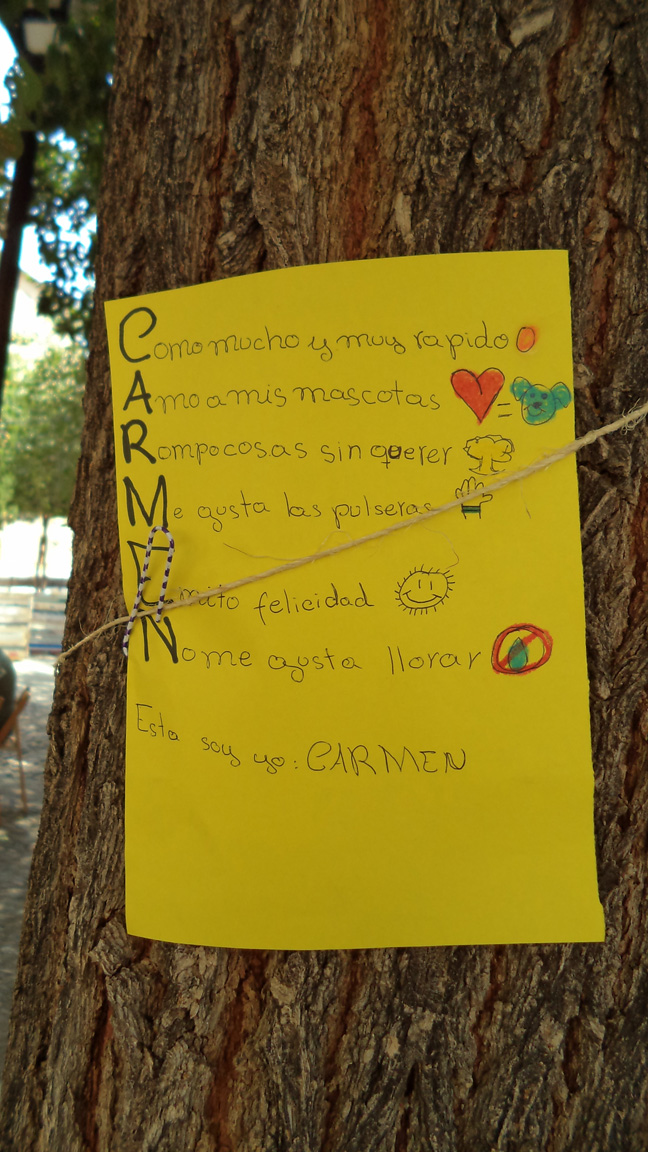 Como mucho y muy rapido
Amo a mis mascotas
Rompo cosas sin querer
Me gusta las pulseras
Emito felicidad
No me gusta llorar
Esta soy yo: CARMEN